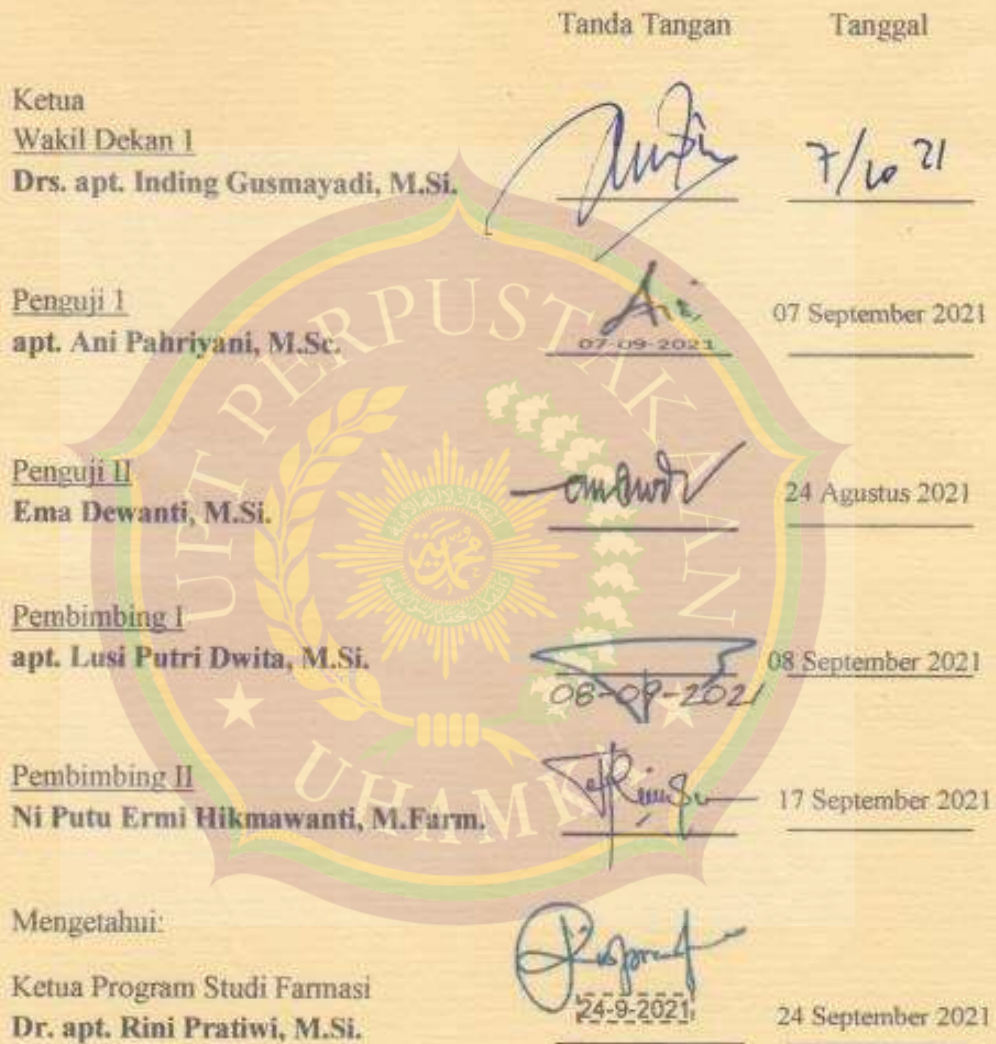 Tanda Tangan Tanggal
Ketua
Wakil Dekan 1
Drs. apt. Inding Gusmayadi, M.Si.
7/10 21
Penguji 1
apt. Ani Pahriyani, M.Sc.
07-09-2021
07 September 2021
Penguji II
Ema Dewanti, M.Si.
24 Agustus 2021
Pembimbing I
apt. Lusi Putri Dwita, M.Si.
08-09-2021
08 September 2021
Pembimbing II
Ni Putu Ermi Hikmawanti, M.Farm.
17 September 2021
Mengetahui:
Ketua Program Studi Farmasi
Dr. apt. Rini Pratiwi, M.Si.
24-9-2021
24 September 2021
UPT PERPUSTAKAAN
UHAMKA